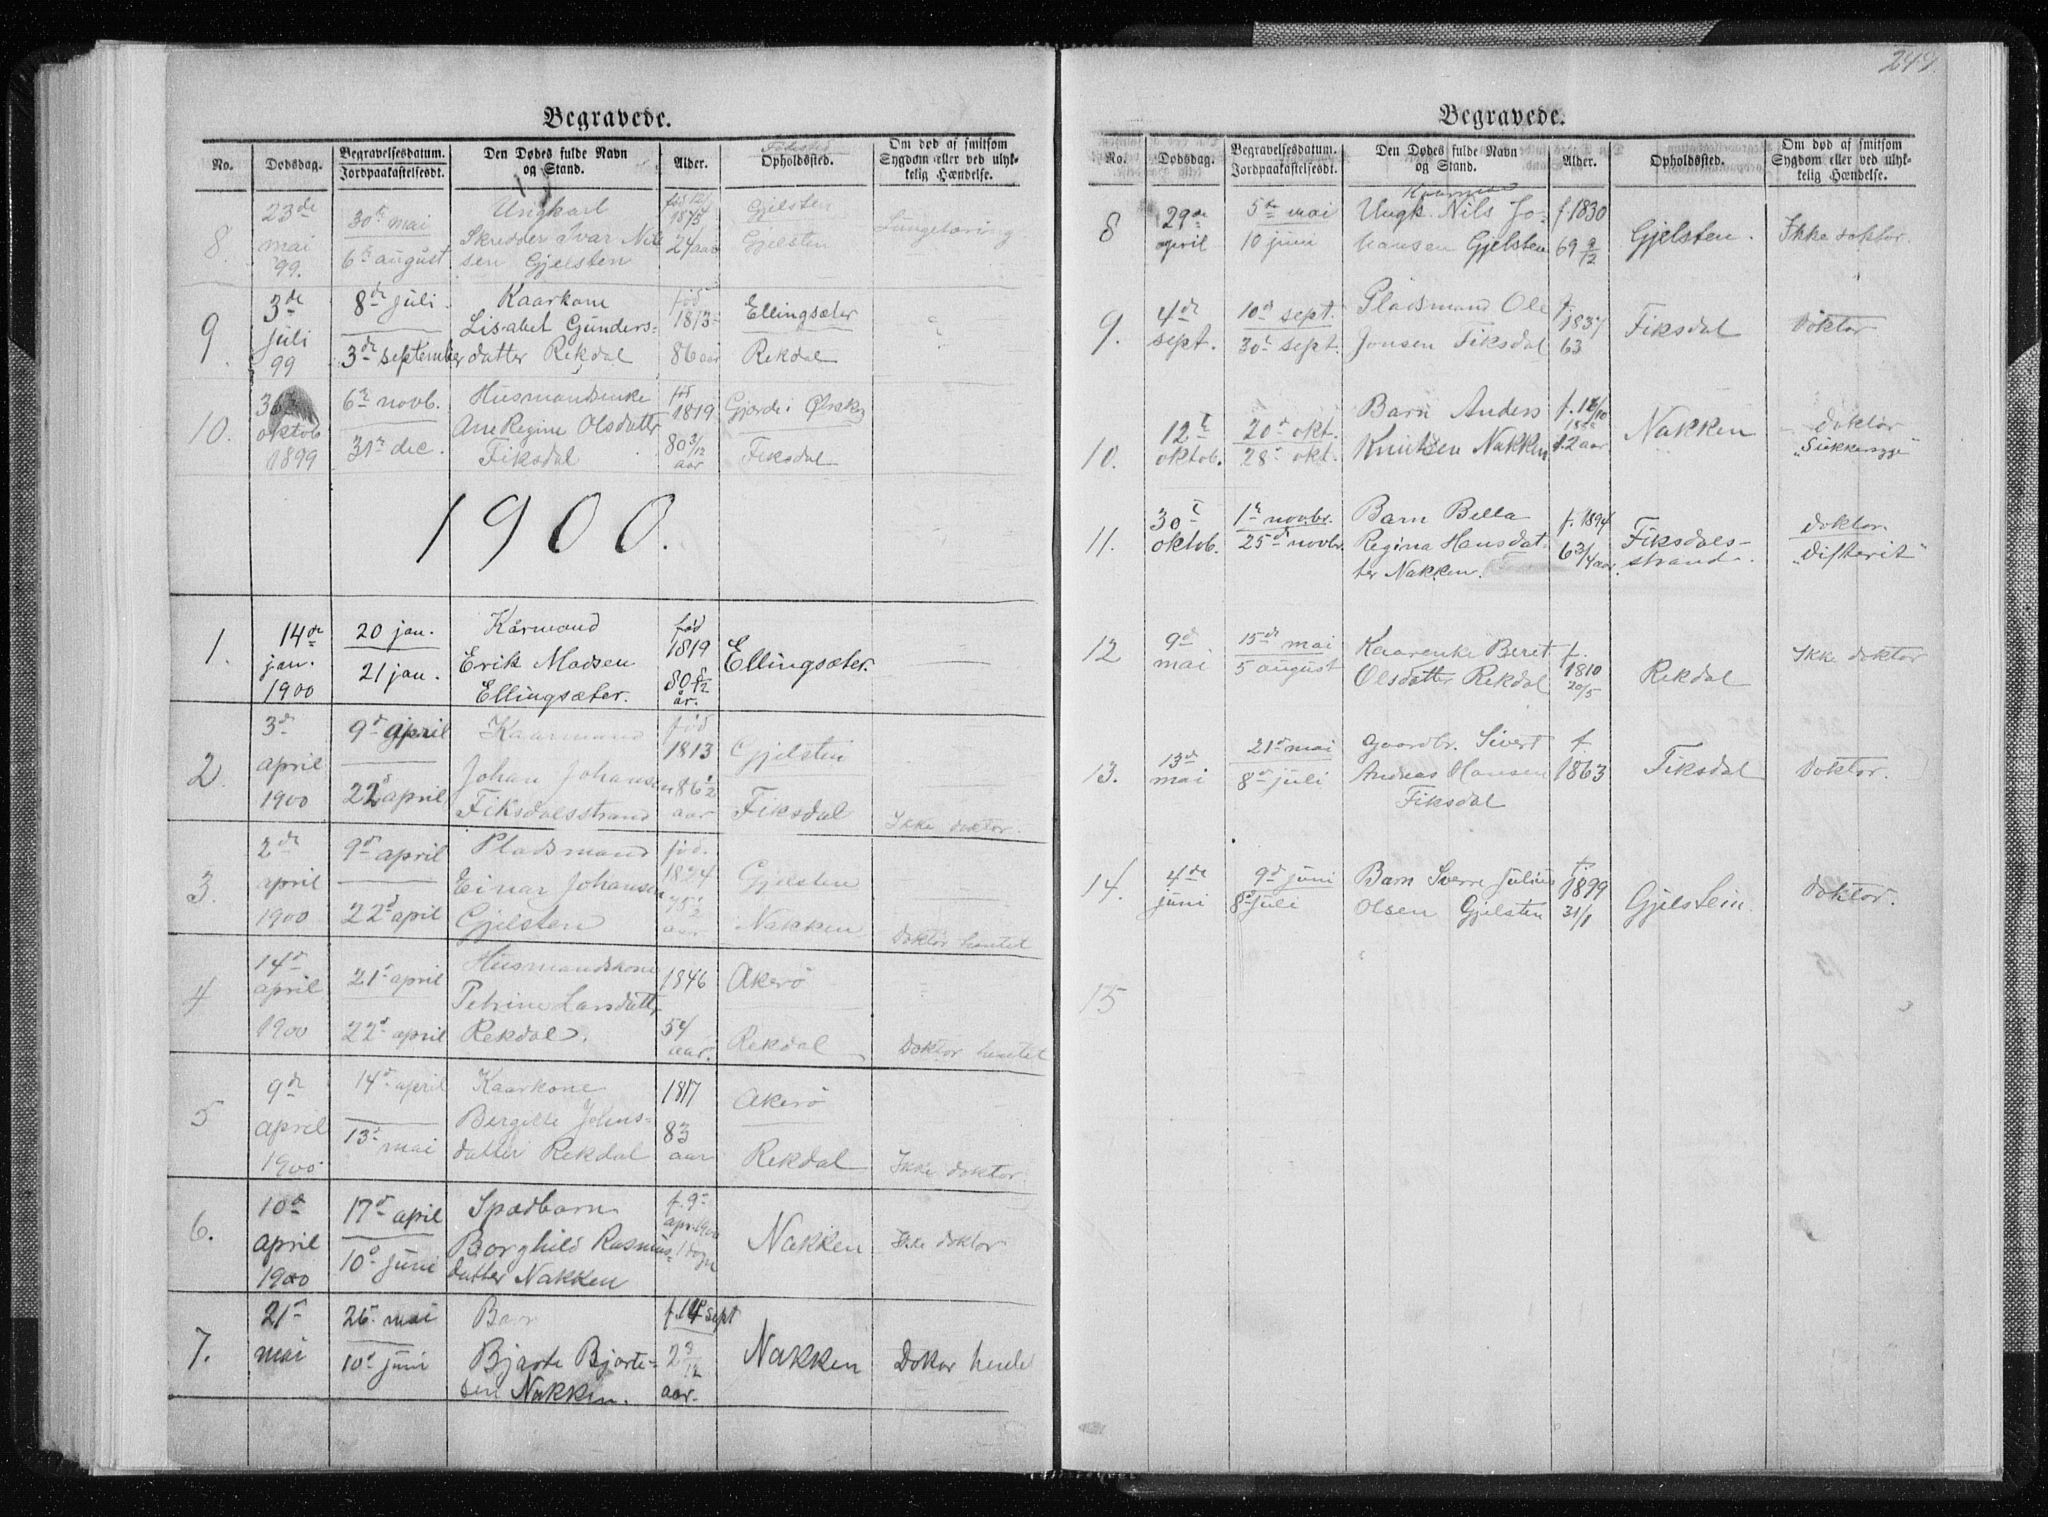 Begravede.
No. Dødsdag. Begravelsesdatum. Jordpaakastelsesdt. Den Dødes fulde Navn og Stand. Alder. Fødested Opholdsted. Om død af smitsom Sygdom eller ved ulykkelig Hændelse.
8. 23de mai 99. 30te mai 6te august Ungkarl Skredder Ivar Nilssen Gjelsten 1875 24 aar Gjelsten Gjelsten Lungetæring
9. 3de juli 99 8de juli. 3de september Kaarkone Lisabet Gundersdatter Rekdal født 1813 86 aar Ellingsæter Rekdal
10. oktob 1899 6te novb. 31te dec. Husmandsenke Ane Regine Olsdatter Fiksdal fød 1819 80 3/12 aar Gjorde i Ørskg Fiksdal
1900.
1. 14de jan. 1900 20 jan. 21 jan. Kårmand Erik Madsen Ellingsæter. fød 1819 80 8/12 år. Ellingsæter.
2. 3de april 1900 9de april 22de april Kaarmand Johan Johansen Fiksdalsstrand fød 1813 86 1/2 aar Gjelsten Fiksdal Ikke doktor.
3. 2de april 1900 9de april 22de april Pladsmand Einar Johansen Gjelsten fød. 1824 75 1/2 aar Gjelsten Nakken Doktor hentet
4 14de april 1900 21de april 22de april Husmandskone Petrine Larsdatter Rekdal. 1846 54 aar. Akerö Rekdal Doktor hentet
5 9de april 1900 14de april 13de mai Kaarkone Bergitte Johnsdatter Rekdal 1817 83 aar Akerö Rekdal Ikke doktor
6. 10de april 1900 17de april 10de juni Spædbarn Borghild Rasmusdatter Nakken f. 9de apr. 1900 1 dogn Nakken Ikke doktor
7. 21de mai 26. mai 10de juni Barn Bjarte Bjartesen Nakken. f. 14 sept aar. Nakken Doktor hentet
244.
Begravede.
No. Dødsdag. Begravelsesdatum. Jordpaakastelsesdt. Den Dødes fulde Navn og Stand. Alder. Opholdsted. Om død af smitsom Sygdom eller ved ulykkelig Hændelse.
8 29de april 5de mai 10 juni Kaarmand Ungk. Nils Johansen Gjelsten f. 1830 69 9/12 Gjelsten. Ikke doktor
9. 4de sept. 10de sept. 30te sept. Pladsmand Ole Jonsen Fiksdal f. 1837 63 Fiksdal Doktor
10. 12te oktob. 20de okt. 28de okt. Barn Anders Knutsen Nakken 2 aar Nakken doktor "Sukkersyge"
11. 30te oktob. 1te novbr. 25de novbr. Barn Bella Regina Hansdatter Nakken. f. 1894 6 3/4 aar. Fiksdalsstrand. doktor. "Difterit"
12 9de mai 15de mai 5 august Kaarenke Beret Olsdatter Rekdal f. 1810 20/5 Rekdal Ikke doktor
13. 13de mai 21de mai 8de juli Gaardbr. Sivert Andreas Hansen Fiksdal f. 1863 Fiksdal Doktor.
14. 4de juni 9de juni 8de juli Barn Sverre Julius Olsen Gjelsten f. 1899 31/1 Gjelstein. Doktor.
15